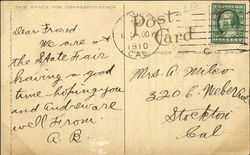 THIS SPACE FOR CORRESPONDENCE
Post
Card
1910
CAL
Dear Friend
We are at
the State Fair
having a good
time hoping you
and Andrew are
well From
A. B.
Mrs A. Milco
320 E. Weber
Stockton
Cal